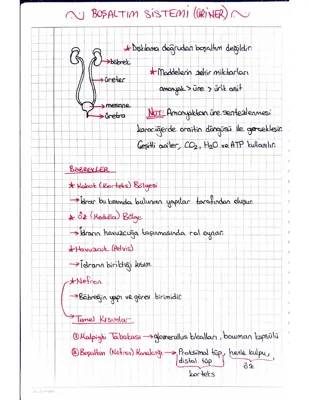 ~ BOŞALTIM SİSTEMİ (ÜRİNER) ~
* Dışkılama doğrudan boşaltım değildir.
böbrek
üreter
* Maddelerin zehir miktarları
amonyak > üre > ürik asit
mesane
üretra
NOT: Amonyaktan üre sentezlenmesi
karaciğerde ornitin döngüsü ile gerçekleşir.
Çeşitli asitler, CO2, H2O ve ATP kullanılır.
BÖBREKLER
* Kabuk (Korteks) Bölgesi
→ İdrar bu kısımda bulunan yapılar tarafından oluşur.
* Öz (Medulla) Bölge
→ İdrarın havuzcuğa taşınmasında rol oynar.
* Havuzcuk (Pelvis)
→ İdrarın biriktiği kısım
* Nefron
→ Böbreğin yapı ve görev birimidir.
Temel Kısımlar
① Malpighi Tabakası → glomerulus kılcalları, bowman kapsülü
② Boşaltım (Nefron) Kanalcığı → Proksimal tüp, henle kulpu,
distal tüp
öz
korteks